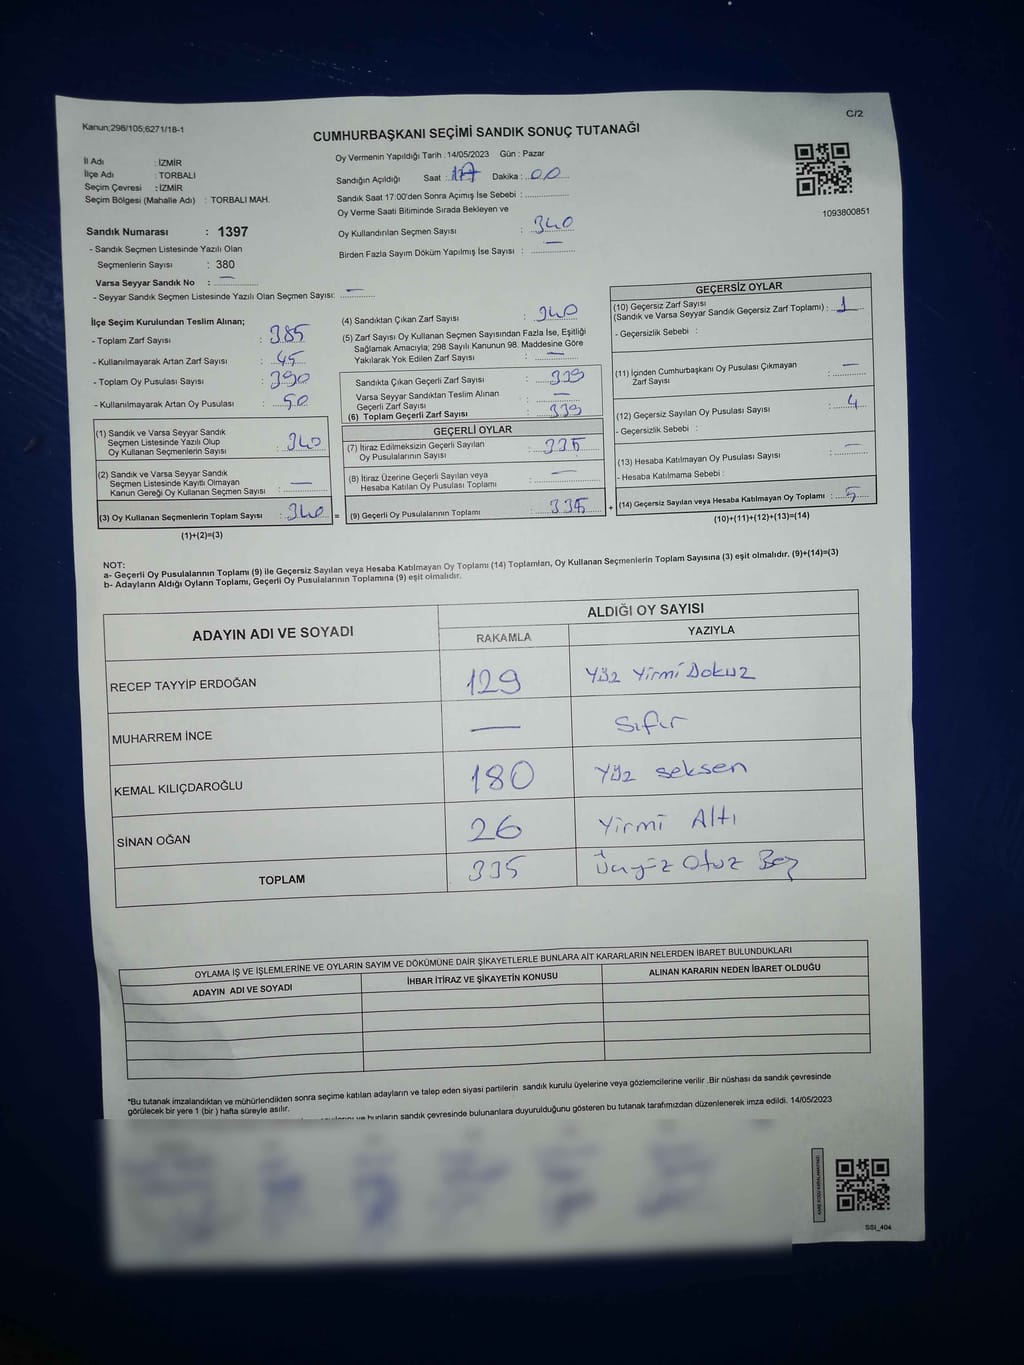 Kanun;298/105;6271/18-1
C/2
CUMHURBAŞKANI SEÇİMİ SANDIK SONUÇ TUTANAĞI
İl Adı : İZMİR
İlçe Adı : TORBALI
Seçim Çevresi : İZMİR
Seçim Bölgesi (Mahalle Adı) : TORBALI MAH.
Oy Vermenin Yapıldığı Tarih : 14/05/2023 Gün : Pazar
Sandığın Açıldığı Saat : 17 Dakika : 00
Sandık Saat 17:00'den Sonra Açımış İse Sebebi :
Oy Verme Saati Bitiminde Sırada Bekleyen ve
Oy Kullandırılan Seçmen Sayısı : 340
Birden Fazla Sayım Döküm Yapılmış İse Sayısı : —
1093800851
Sandık Numarası : 1397
- Sandık Seçmen Listesinde Yazılı Olan
Seçmenlerin Sayısı : 380
Varsa Seyyar Sandık No : —
- Seyyar Sandık Seçmen Listesinde Yazılı Olan Seçmen Sayısı: —
İlçe Seçim Kurulundan Teslim Alınan;
- Toplam Zarf Sayısı : 385
- Kullanılmayarak Artan Zarf Sayısı : 45
- Toplam Oy Pusulası Sayısı : 390
- Kullanılmayarak Artan Oy Pusulası : 50
(1) Sandık ve Varsa Seyyar Sandık
Seçmen Listesinde Yazılı Olup
Oy Kullanan Seçmenlerin Sayısı : 340
(2) Sandık ve Varsa Seyyar Sandık
Seçmen Listesinde Kayıtlı Olmayan
Kanun Gereği Oy Kullanan Seçmen Sayısı : —
(3) Oy Kullanan Seçmenlerin Toplam Sayısı : 340 =
(1)+(2)=(3)
(4) Sandıktan Çıkan Zarf Sayısı : 340
(5) Zarf Sayısı Oy Kullanan Seçmen Sayısından Fazla İse, Eşitliği
Sağlamak Amacıyla; 298 Sayılı Kanunun 98. Maddesine Göre
Yakılarak Yok Edilen Zarf Sayısı : —
Sandıkta Çıkan Geçerli Zarf Sayısı : 339
Varsa Seyyar Sandıktan Teslim Alınan
Geçerli Zarf Sayısı : —
(6) Toplam Geçerli Zarf Sayısı : 339
GEÇERLİ OYLAR
(7) İtiraz Edilmeksizin Geçerli Sayılan
Oy Pusulalarının Sayısı : 335
(8) İtiraz Üzerine Geçerli Sayılan veya
Hesaba Katılan Oy Pusulası Toplamı : —
(9) Geçerli Oy Pusulalarının Toplamı : 335 +
GEÇERSİZ OYLAR
(10) Geçersiz Zarf Sayısı
(Sandık ve Varsa Seyyar Sandık Geçersiz Zarf Toplamı) : 1
- Geçersizlik Sebebi :
(11) İçinden Cumhurbaşkanı Oy Pusulası Çıkmayan
Zarf Sayısı : —
(12) Geçersiz Sayılan Oy Pusulası Sayısı : 4
- Geçersizlik Sebebi :
(13) Hesaba Katılmayan Oy Pusulası Sayısı : —
- Hesaba Katılmama Sebebi :
(14) Geçersiz Sayılan veya Hesaba Katılmayan Oy Toplamı : 5
(10)+(11)+(12)+(13)=(14)
NOT:
a- Geçerli Oy Pusulalarının Toplamı (9) ile Geçersiz Sayılan veya Hesaba Katılmayan Oy Toplamı (14) Toplamları, Oy Kullanan Seçmenlerin Toplam Sayısına (3) eşit olmalıdır. (9)+(14)=(3)
b- Adayların Aldığı Oyların Toplamı, Geçerli Oy Pusulalarının Toplamına (9) eşit olmalıdır.
ADAYIN ADI VE SOYADI ALDIĞI OY SAYISI
RAKAMLA YAZIYLA
RECEP TAYYİP ERDOĞAN 129 Yüz Yirmi Dokuz
MUHARREM İNCE — Sıfır
KEMAL KILIÇDAROĞLU 180 Yüz seksen
SİNAN OĞAN 26 Yirmi Altı
TOPLAM 335 Üçyüz Otuz Beş
OYLAMA İŞ VE İŞLEMLERİNE VE OYLARIN SAYIM VE DÖKÜMÜNE DAİR ŞİKAYETLERLE BUNLARA AİT KARARLARIN NELERDEN İBARET BULUNDUKLARI
ADAYIN ADI VE SOYADI İHBAR İTİRAZ VE ŞİKAYETİN KONUSU ALINAN KARARIN NEDEN İBARET OLDUĞU
*Bu tutanak imzalandıktan ve mühürlendikten sonra seçime katılan adayların ve talep eden siyasi partilerin sandık kurulu üyelerine veya gözlemcilerine verilir .Bir nüshası da sandık çevresinde
görülecek bir yere 1 (bir ) hafta süreyle asılır.
ve bunların sandık çevresinde bulunanlara duyurulduğunu gösteren bu tutanak tarafımızdan düzenlenerek imza edildi. 14/05/2023
SSI_404